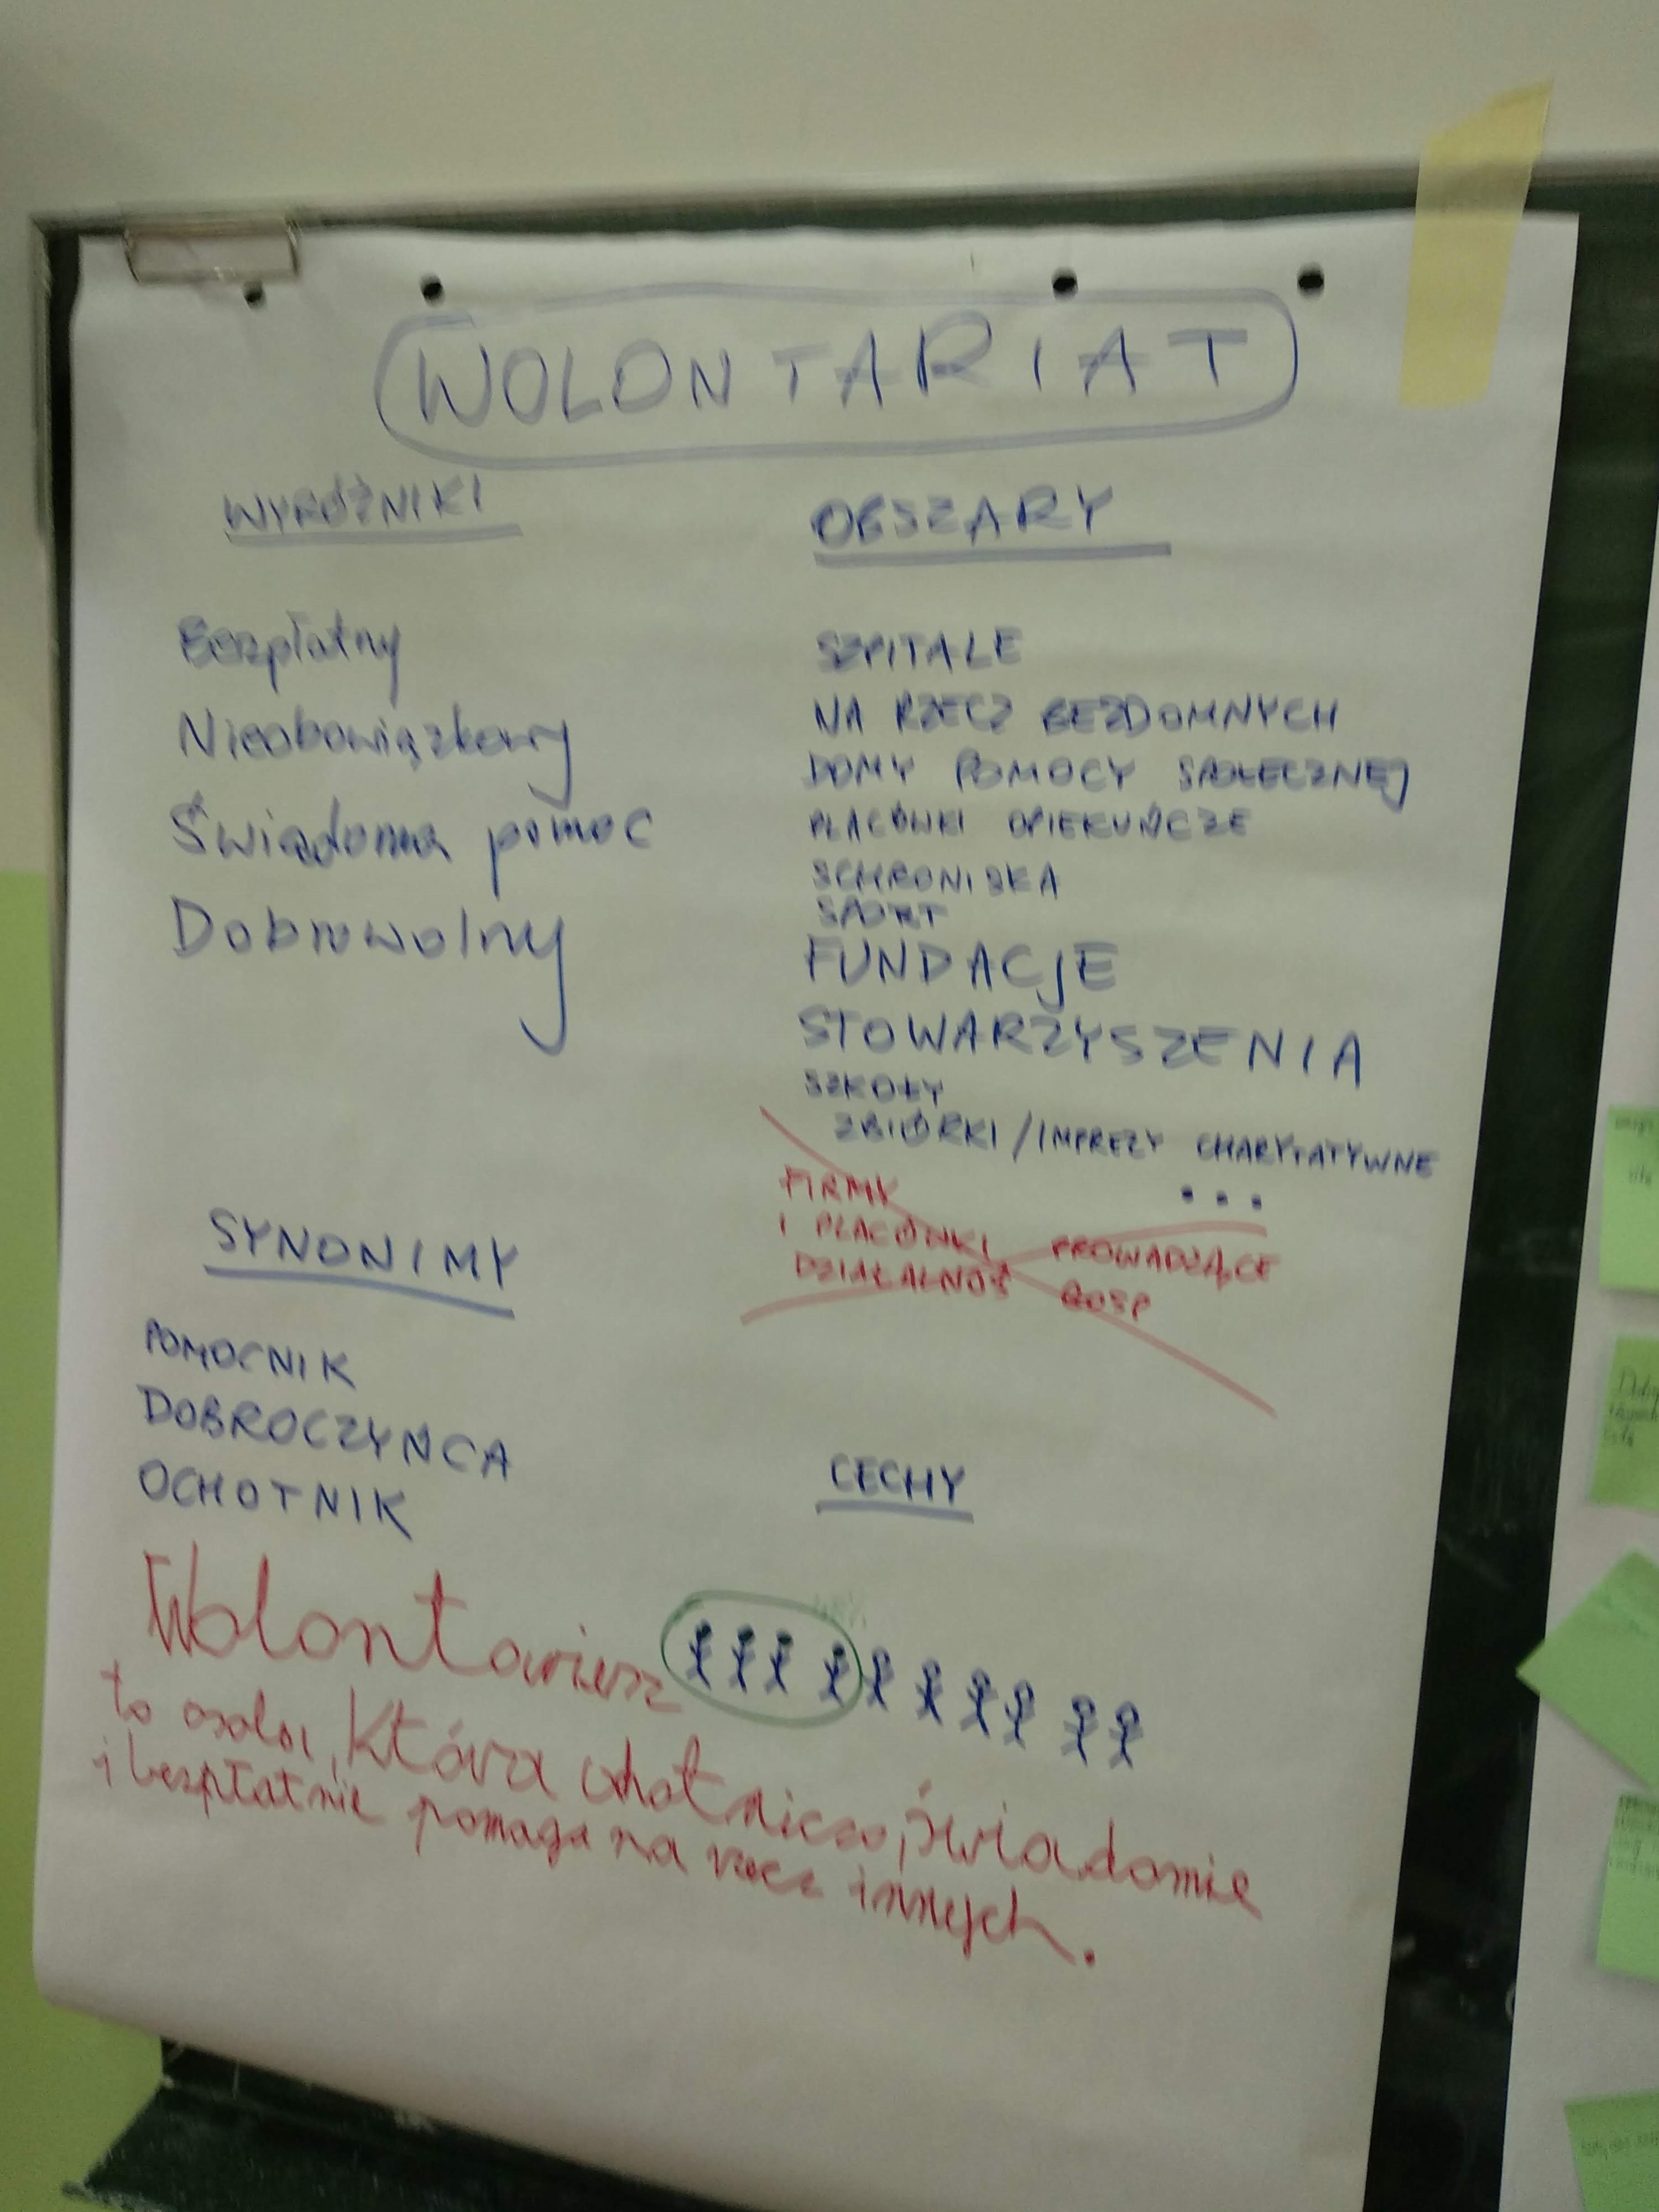 WOLONTARIAT
WYRÓŻNIKI
Bezpłatny
Nieobowiązkowy
Świadoma pomoc
Dobrowolny
OBSZARY
SZPITALE
NA RZECZ BEZDOMNYCH
DOMY POMOCY SPOŁECZNEJ
PLACÓWKI OPIEKUŃCZE
SCHRONISKA
SPORT
FUNDACJE
STOWARZYSZENIA
SZKOŁY
ZBIÓRKI / IMPREZY CHARYTATYWNE
...
FIRMY
I PLACÓWKI PROWADZĄCE
DZIAŁALNOŚ GOSP
SYNONIMY
POMOCNIK
DOBROCZYŃCA
OCHOTNIK
CECHY
Wolontariusz
to osoba, która ochotniczo, świadomie
i bezpłatnie pomaga na rzecz innych.